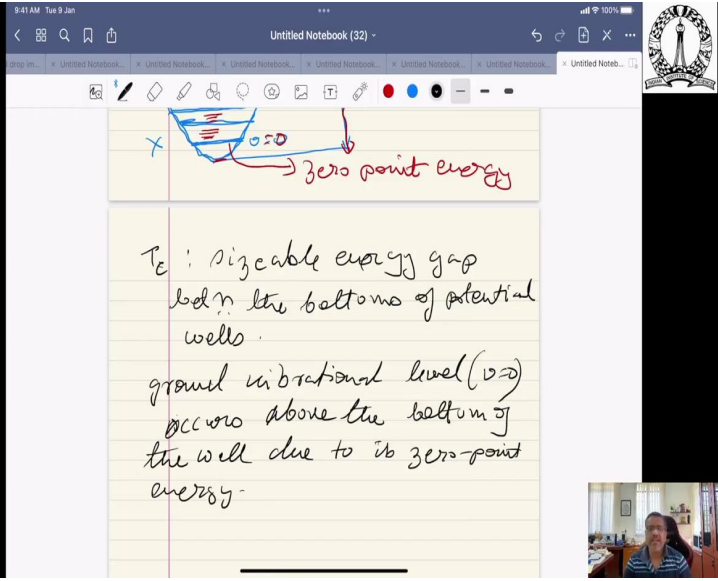 9:41 AM Tue 9 Jan
100%
Untitled Notebook (32)
drop im...
× Untitled Notebook...
× Untitled Notebook...
× Untitled Notebook...
× Untitled Notebook...
× Untitled Notebook...
× Untitled Noteb...
X
υ=0
zero point energy
T_E : sizeable energy gap
betn the bottoms of potential
wells.
ground vibrational level (υ=0)
occurs above the bottom of
the well due to its zero-point
energy-
INDIAN INSTITUTE OF SCIENCE